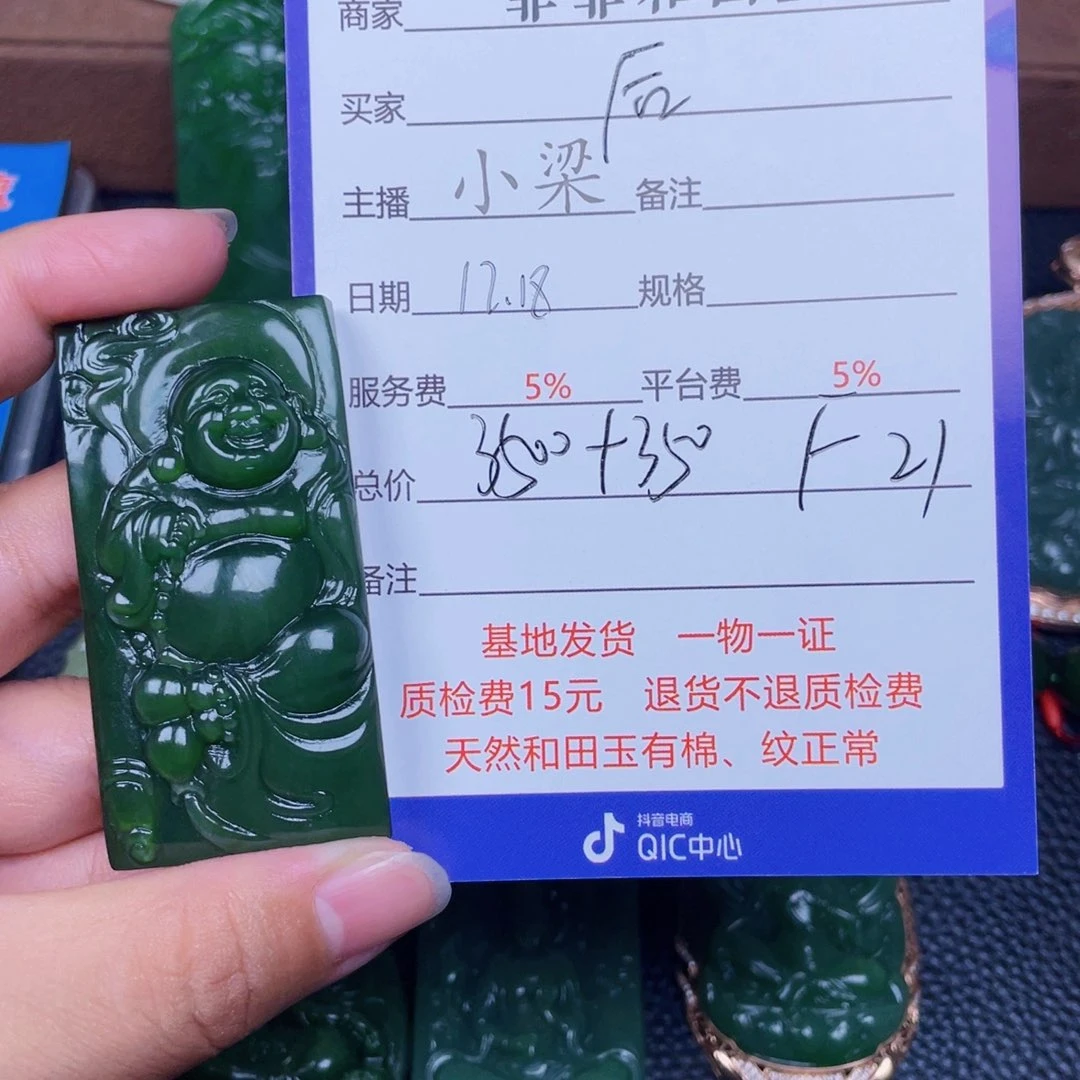 商家
买家 后
主播 小梁 备注
日期 12.18 规格
服务费 5% 平台费 5%
总价 3500+350
备注
基地发货 一物一证
质检费15元 退货不退质检费
天然和田玉有棉、纹正常
抖音电商
QIC中心